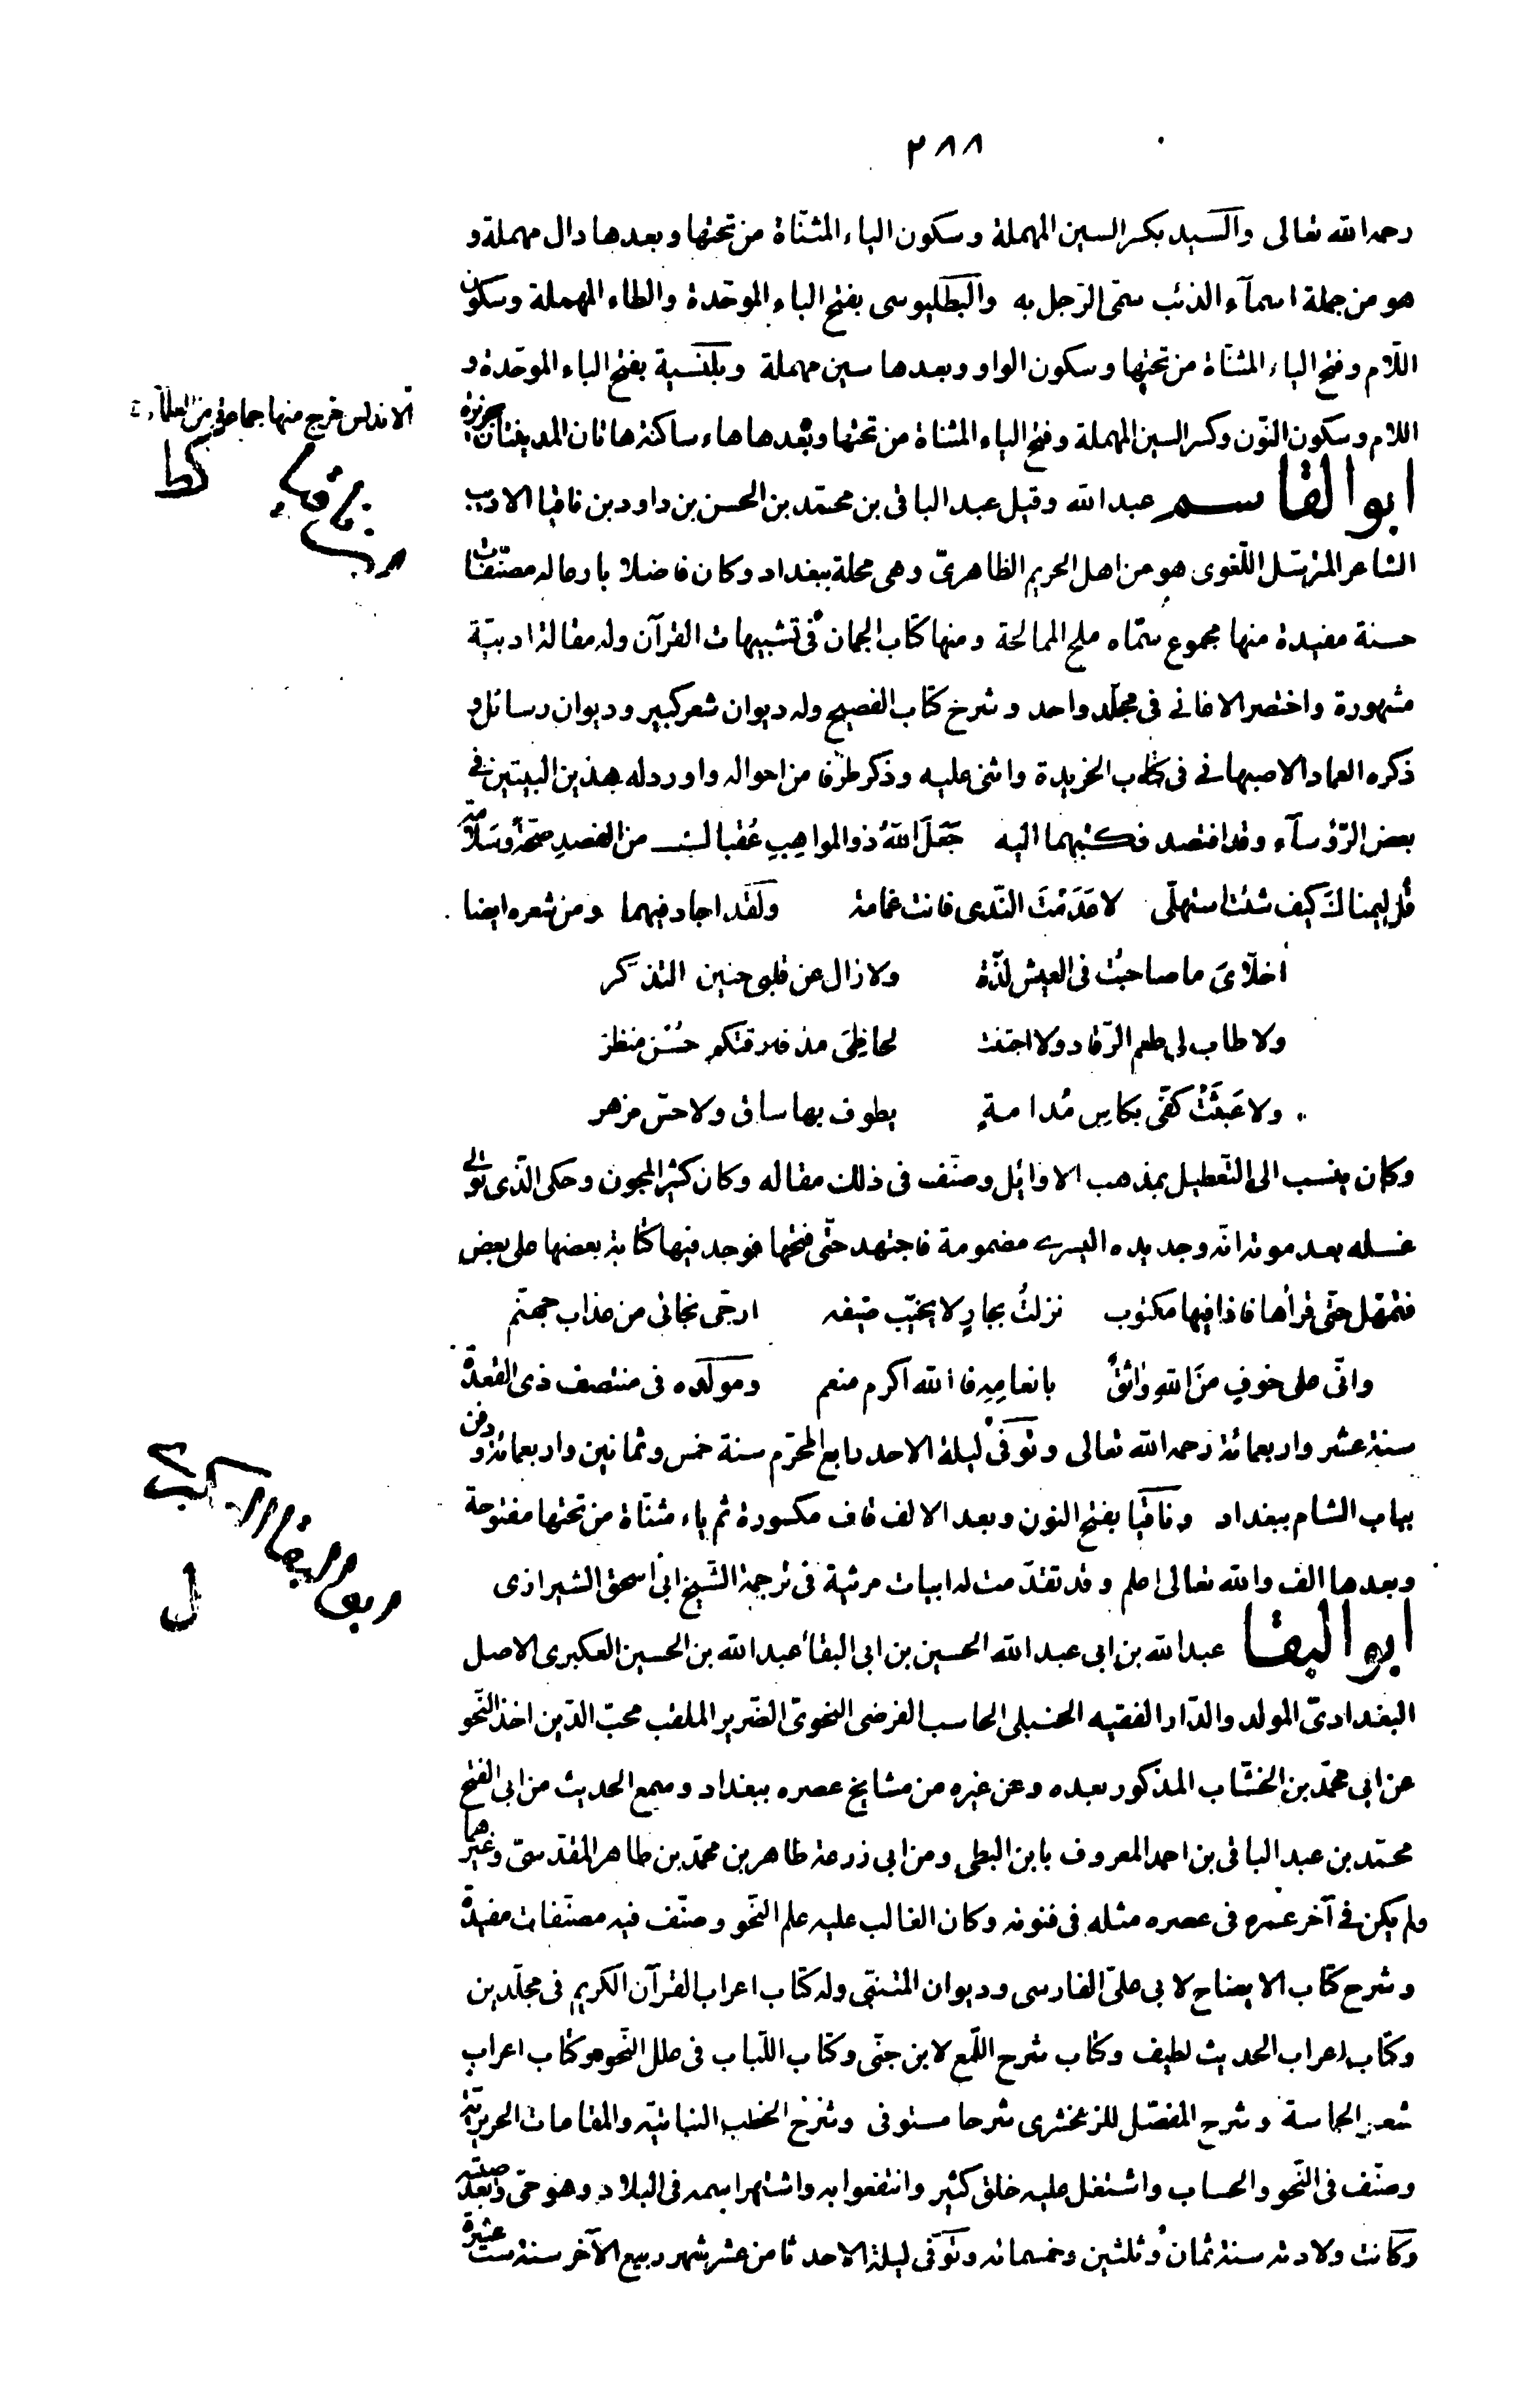 ٢٨٨
رحمه الله تعالى والسيد بكسر السين المهملة وسكون الياء المثنّاة من تحتها وبعدها دال مهملة و
هو من جملة اسمآء الذئب سمّى الرّجل به والبطليوسى بفتح الباء الموحّدة والطاء المهملة وسكون
اللّام وفتح الياء المثنّاة من تحتها وسكون الواو وبعدها سين مهملة وبلنسية بفتح الباء الموحّدة و
اللام وسكون النّون وكسر السين المهملة وفتح الياء المثناة من تحتها وبعدها هاء ساكنة هاتان المدينتان بجزيرة
الاندلس خرج منها جماعة من العلمآء
كط
ابن ناقيا
ابو القاسم عبد الله وقيل عبد الباقى بن محمّد بن الحسن بن داود بن ناقيا الاديب
الشاعر المترسّل اللّغوى هو من اهل الحريم الظاهرىّ وهى محلة ببغداد وكان فاضلا بارعا له مصنّفات
حسنة مفيدة منها مجموع سمّاه ملح الممالحة ومنها كتاب الجمان فى تشبيهات القرآن وله مقالة ادبيّة
مشهورة واختصر الاغانى فى مجلّد واحد وشرح كتاب الفصيح وله ديوان شعر كبير وديوان رسائل و
ذكره العماد الاصبهانى فى كتاب الخريدة واثنى عليه وذكر طرفا من احواله واورد له هذين البيتين فى
بعض الرّؤسآء وقد افتصد فكتبهما اليه جَعَلَ اللهُ ذو المواهِبِ عُقبالـ من الفصدِ صحّةً وسَلامة
قُل ليمناك كيف شئت استهلّى لا عَدَمْتَ النّدى فانت غمامة ولقد اجاد فيهما ومن شعره ايضا
أخلّاىَ ما صاحبْت فى العيش لذّة ولا زال عن قلبى حنين التذكّر
ولا طاب لى طعم الرّقاد ولا اجتنت لحاظِىَ مذ فارقتكم حُسْن منظر
ولا عَبثَتْ كفّى بكاسِ مُدامةٍ يطوف بها ساق ولا حسّ مزهر
وكان ينسب الى التّعطيل بمذهب الاوائل وصنّف فى ذلك مقاله وكان كثير المجون وحكى الّذى تولى
غسله بعد موته انّه وجد يده اليسرى مضمومة فاجتهد حتّى فتحها فوجد فيها كتابة بعضها على بعض
فتمهّل حتّى قرأها فاذا فيها مكتوب نزلتُ بجارٍ لا يخيّب ضيفه ارجّى نجاتى من عذاب جهنّم
وانّى على خوفى منَ اللهِ واثقٌ بانعامِهِ فالله اكرم منعم ومولده فى منتصف ذى القعدة
سنة عشر واربعمائة رحمه الله تعالى وتوفى ليلة الاحد رابع المحرّم سنة خمس وثمانين واربعمائة ودفن
بباب الشام ببغداد وناقيا بفتح النون وبعد الالف قاف مكسورة ثم ياء مثنّاة من تحتها مفتوحة
وبعدها الف والله تعالى اعلم وقد تقدّمت له ابيات مرثية فى ترجمة الشّيخ ابى اسحق الشيرازى
ابو البقا العكبرى
ل
ابو البقا عبد الله بن ابى عبد الله الحسين بن ابى البقأ عبد الله بن الحسين العكبرى الاصل
البغدادىّ المولد والدّار الفقيه الحنبلى الحاسب الفرضى النحوىّ الضّرير الملقب محبّ الدّين اخذ النّحو
عن ابى محمّد بن الخشّاب المذكور بعده وعن غيره من مشايخ عصره ببغداد وسمع الحديث من ابى الفتح
محمّد بن عبد الباقى بن احمد المعروف بابن البطى ومن ابى زرعة طاهر بن محمّد بن طاهر المقدّسىّ وغيرهما
ولم يكن فى آخر عمره فى عصره مثله فى فنونه وكان الغالب عليه علم النّحو وصنّف فيه مصنّفات مفيدة
وشرح كتاب الايضاح لابى علىّ الفارسى وديوان المتنبّى وله كتاب اعراب القرآن الكريم فى مجلّدين
وكتاب اعراب الحديث لطيف وكتاب شرح اللّمع لابن جنّى وكتاب اللّباب فى علل النّحو وكتاب اعراب
شعر الحماسة وشرح المفصّل للزمخشرى شرحا مستوفى وشرح الخطب النباتيّه والمقامات الحريريّة
وصنّف فى النّحو والحساب واشتغل عليه خلق كثير وانتفعوا به واشتهر اسمه فى البلاد وهو حىّ وبعد صيته
وكانت ولادته سنة ثمان وثلثين وخمسمائه وتوفّى ليلة الاحد ثامن عشر شهر ربيع الآخر سنة ست عشرة